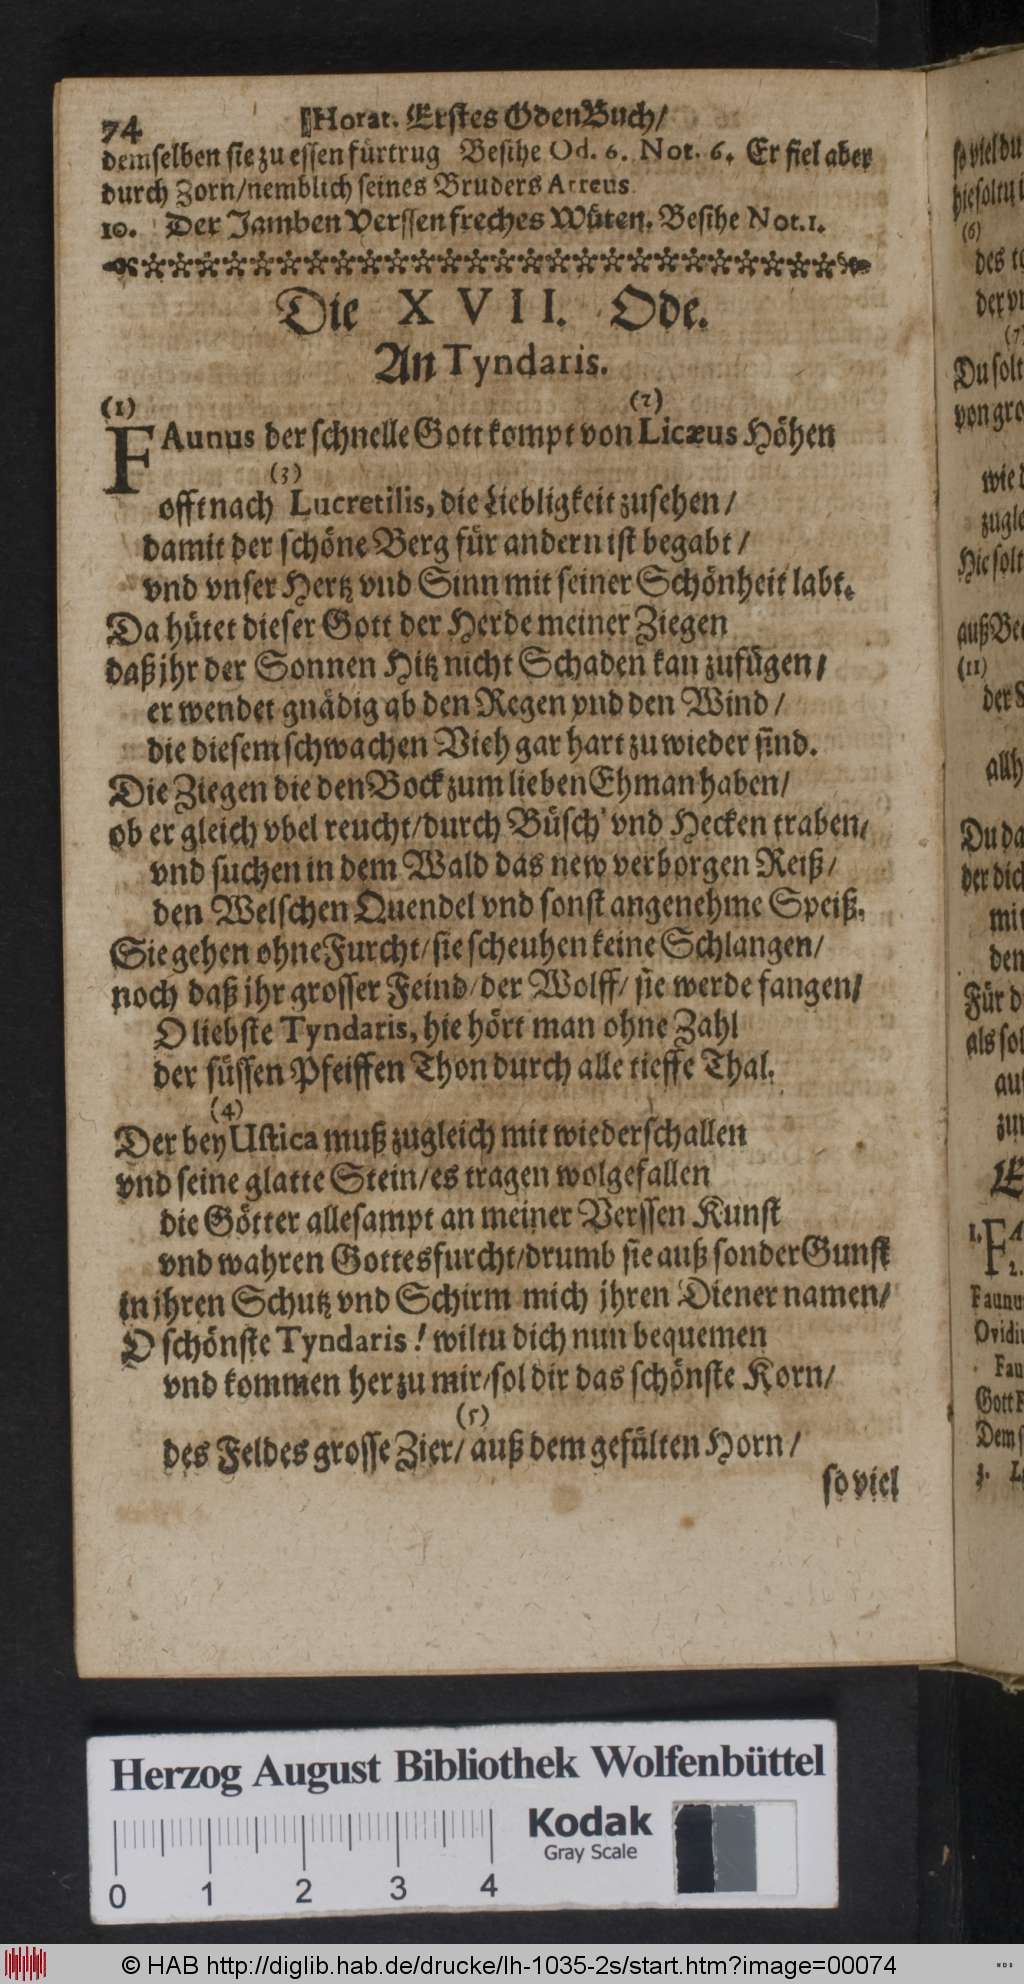 74 Horat. Erstes OdenBuch/
demselben sie zu essen fürtrug Besihe Od. 6. Not. 6. Er fiel aber
durch Zorn/nemblich seines Bruders Atreus
10. Der Jamben Verssen freches Wüten. Besihe Not. 1.
Die XVII. Ode.
An Tyndaris.
(1) (2)
FAunus der schnelle Gott kompt von Licæus Höhen
(3)
offt nach Lucretilis, die Liebligkeit zusehen/
damit der schöne Berg für andern ist begabt/
vnd vnser Hertz vnd Sinn mit seiner Schönheit labt.
Da hütet dieser Gott der Herde meiner Ziegen
daß jhr der Sonnen Hitz nicht Schaden kan zufügen/
er wendet gnädig ab den Regen vnd den Wind/
die diesem schwachen Vieh gar hart zuwieder sind.
Die Ziegen die den Bock zum lieben Ehman haben/
ob er gleich vbel reucht/durch Büsch' vnd Hecken traben/
vnd suchen in dem Wald das new verborgen Reiß/
den Welschen Quendel vnd sonst angenehme Speiß.
Sie gehen ohne Furcht/sie scheuhen keine Schlangen/
noch daß jhr grosser Feind/der Wolff/sie werde fangen/
O liebste Tyndaris, hie hört man ohne Zahl
der süssen Pfeiffen Thon durch alle tieffe Thal.
(4)
Der bey Ustica muß zugleich mit wiederschallen
vnd seine glatte Stein/es tragen wolgefallen
die Götter allesampt an meiner Verssen Kunst
vnd wahren Gottesfurcht/drumb sie auß sonder Gunst
in jhren Schutz vnd Schirm mich jhren Diener namen/
O schönste Tyndaris! wiltu dich nun bequemen
vnd kommen her zu mir/sol dir das schönste Korn/
(5)
des Feldes grosse Zier/auß dem gefülten Horn/
so viel
so viel du
(6)
des
(7)
Du solt
von
wie
Hie solt
(11)
der
Du
der dich
mit
den
Für
als
1. F
2.
Ovidi
Gott
3.
Herzog August Bibliothek Wolfenbüttel
0 1 2 3 4
Kodak
Gray Scale
© HAB http://diglib.hab.de/drucke/lh-1035-2s/start.htm?image=00074